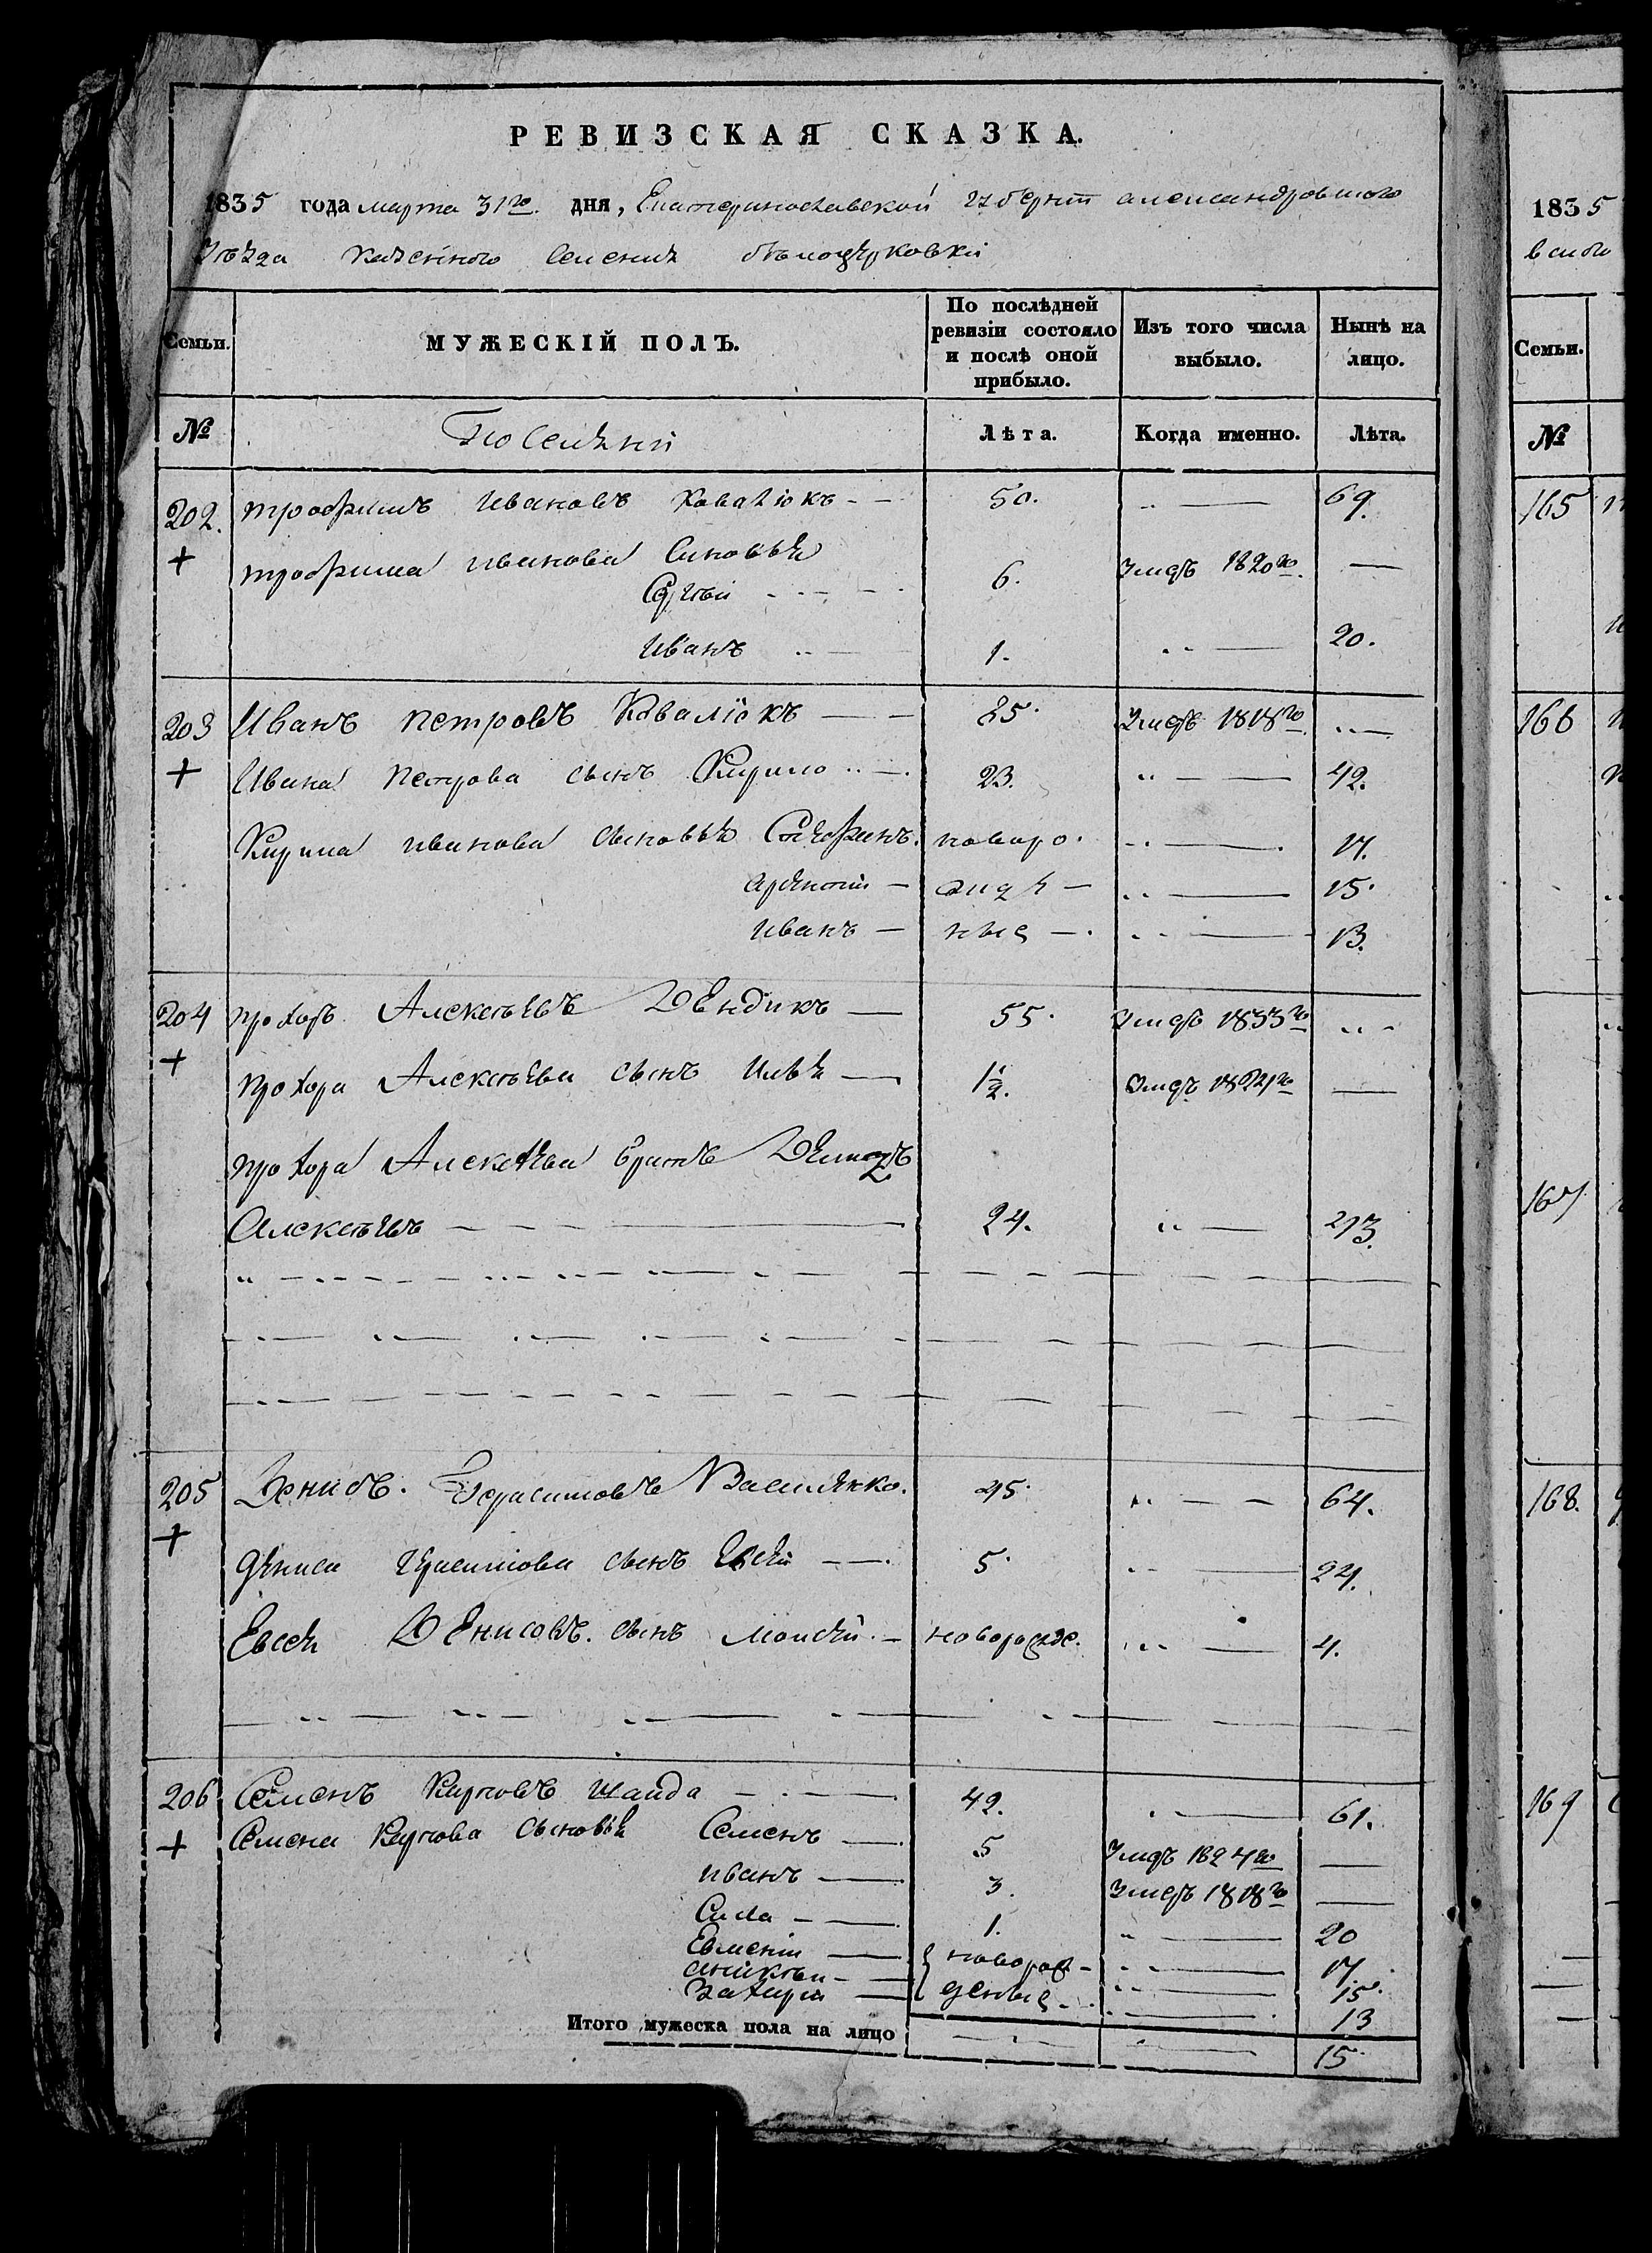 РЕВИЗСКАЯ СКАЗКА.
1835 года марта 31го дня, Екатеринославской губерніи александровского
уѣзда казенного селенія бѣлоцерковки
Семьи. МУЖЕСКІЙ ПОЛЪ. По послѣдней ревизіи состояло и послѣ оной прибыло. Изъ того числа выбыло. Нынѣ на лицо.
№ Поселяни Лѣта. Когда именно. Лѣта.
202. трофимъ ивановъ ковалюкъ 50. 69.
трофима иванова синовья
Сергѣй 6. умеръ 1820го.
иванъ 1. 20.
203 Иванъ петровъ Ковалюкъ умеръ 1818го
Ивана петрова сынъ Кирило 23. 42.
Кирила иванова сыновья Стефанъ. новоро 17.
арсентій 15.
иванъ ные 13.
204 прохоръ Алексѣевъ Дендикъ 55. умеръ 1833го
прохора Алексѣева сынъ илья 1½. умеръ
прохора Алексѣева братъ Демидъ
Алексѣевъ 24. 43.
205 Денисъ Герасимовъ Василенко. 45. 64.
дениса герасимова сынъ Евсей 5. 24.
Евсея Денисовъ сынъ моисей новорожде. 4.
206 Семенъ карповъ 42. 61.
Семена Карпова сыновья Семенъ 5 умеръ 1824го
иванъ 3. умеръ 1818го
Сила 1. 20
Евменій новорож- 17.
аникѣи денные 15.
Захарій 13
Итого мужеска пола на лицо 15
1835
Семьи.
№
165
166
167
168.
169